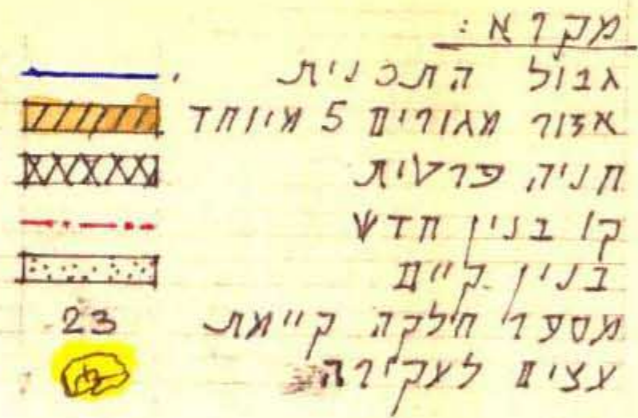 מקרא:
גבול התכנית
אזור מגורים 5 מיוחד
חניה פרטית
קו בנין חדש
בנין קיים
מספר חלקה קיימת 23
עצים לעקירה